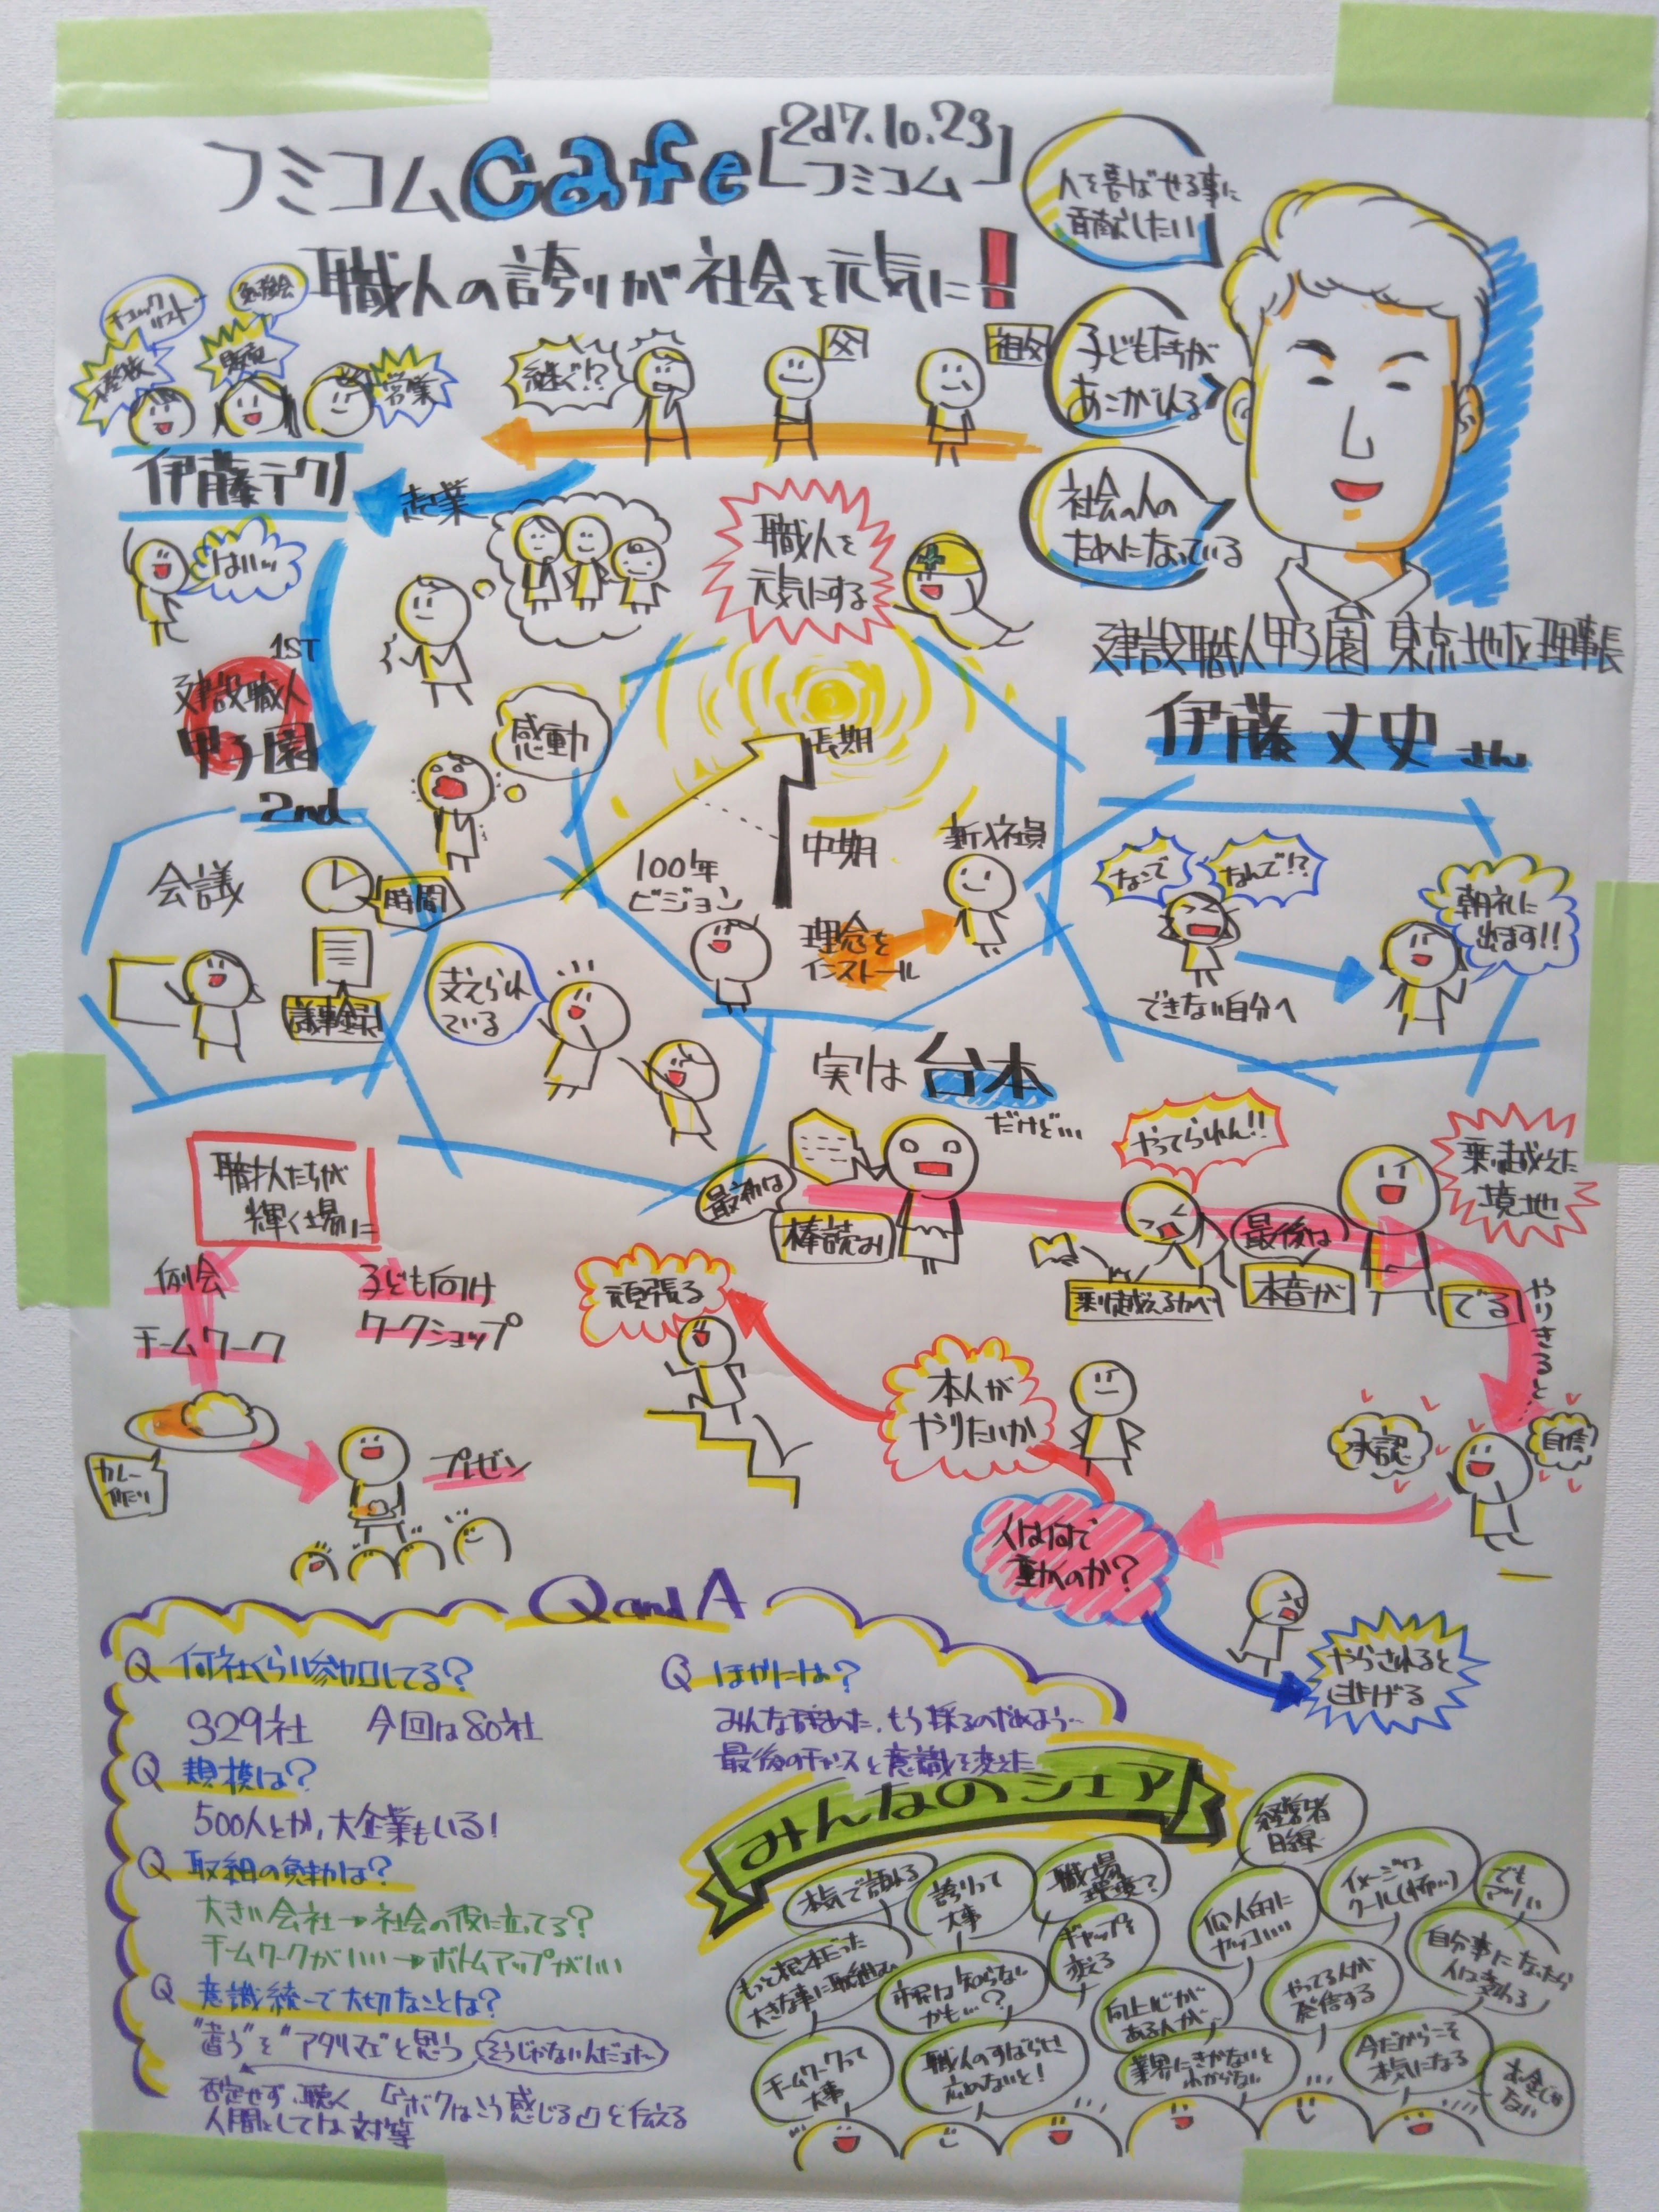 フミコムcafe
2017.10.23
フミコム
職人の誇りが社会を元気に!
人を喜ばせる事に
貢献したい
子どもたちが
あこがれる
社会の人の
ためになっている
建設職人甲子園 東京地区理事長
伊藤 丈史 さん
祖父
父
継ぐ!?
チェック
リスト
勉強会
営業
伊藤テクノ
起業
はいッ
職人を
元気にする
1ST
建設職人
甲子園
2nd
感動
会議
時間
議事録
支えられ
ている
長期
中期
100年
ビジョン
新入社員
理念を
インストール
なんで
なんで!?
できない自分へ
朝礼に
出ます!!
実は台本
だけど…
最初は
棒読み
やってられん!!
乗り越えるカベ
最後は
本音が
でる
乗り越えた
境地
やりきると
承認
自信
職人たちが
輝く場に
例会
チームワーク
子ども向け
ワークショップ
カレー
プレゼン
頑張る
本人が
やりたいか
人は何で
動くのか?
やらされると
逃げる
Q and A
Q 何社くらい参加してる?
329社 今回は80社
Q 規模は?
500人とか、大企業もいる!
Q 取組の魅力は?
大きい会社→社会の役に立ってる?
チームワークがいい→ボトムアップがいい
Q 意識統一で大切なことは?
"違う"を"アタリマエ"と思う
そうじゃないんだよな~
否定せず、聴く 「ボクはこう感じる」を伝える
人間としては対等
Q ほかには?
みんな辞めた、もう採るのやめよう…
最後のチャンスと意識を変えた
みんなのシェア
本気で語れる
誇りって
大事
職場
環境?
経営者
目線
個人的に
ヤッコい…
イメージは
クール(怖い)
でも
もっと根本だった
大きな事に取組む
市民は知らない
かも…?
ギャップを
変える
向上心が
ある人が
やってる人が
発信する
自分事になったら
人は変わる
チームワークって
大事
職人のすばらしさ
広めないと!
業界にきかないと
わからない
今だからこそ
本気になる
お金じゃ
ない